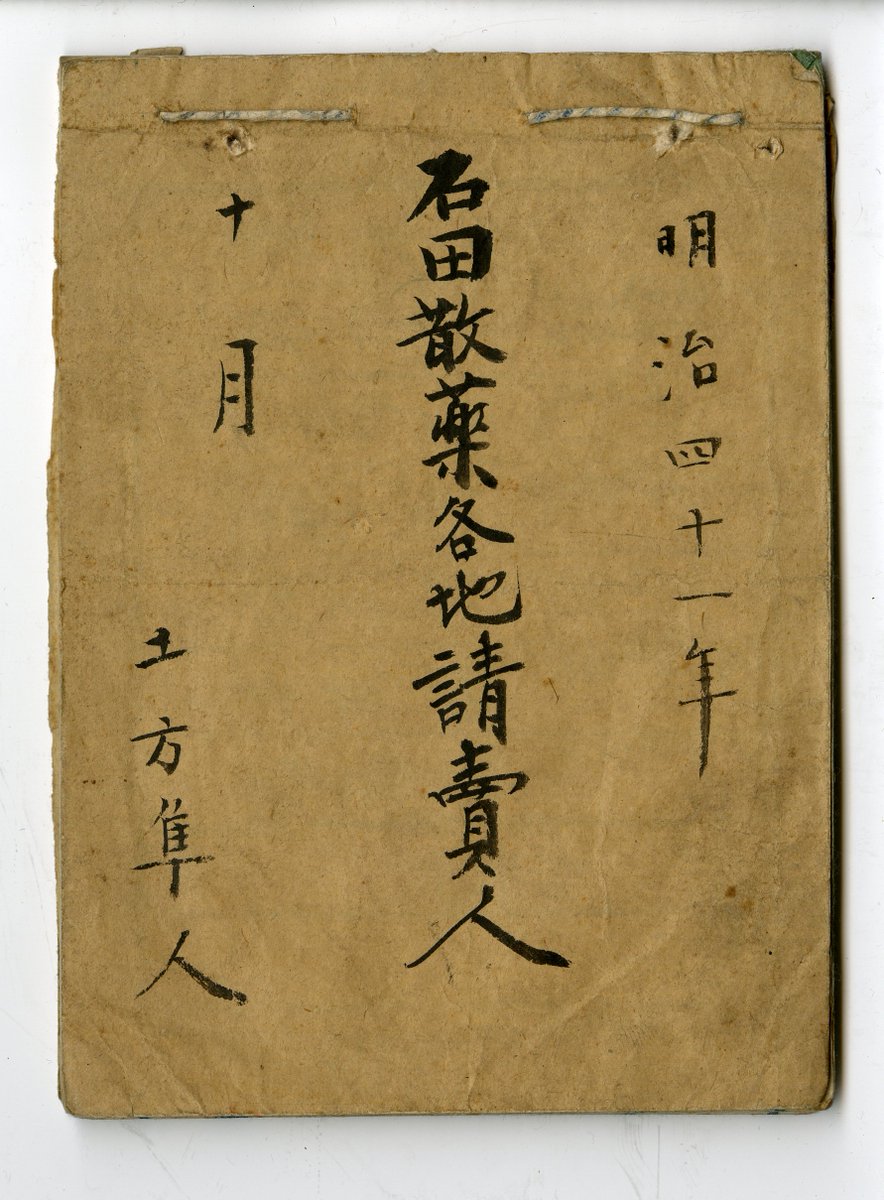 明治四十一年
石田散薬各地請賣人
十月
土方隼人